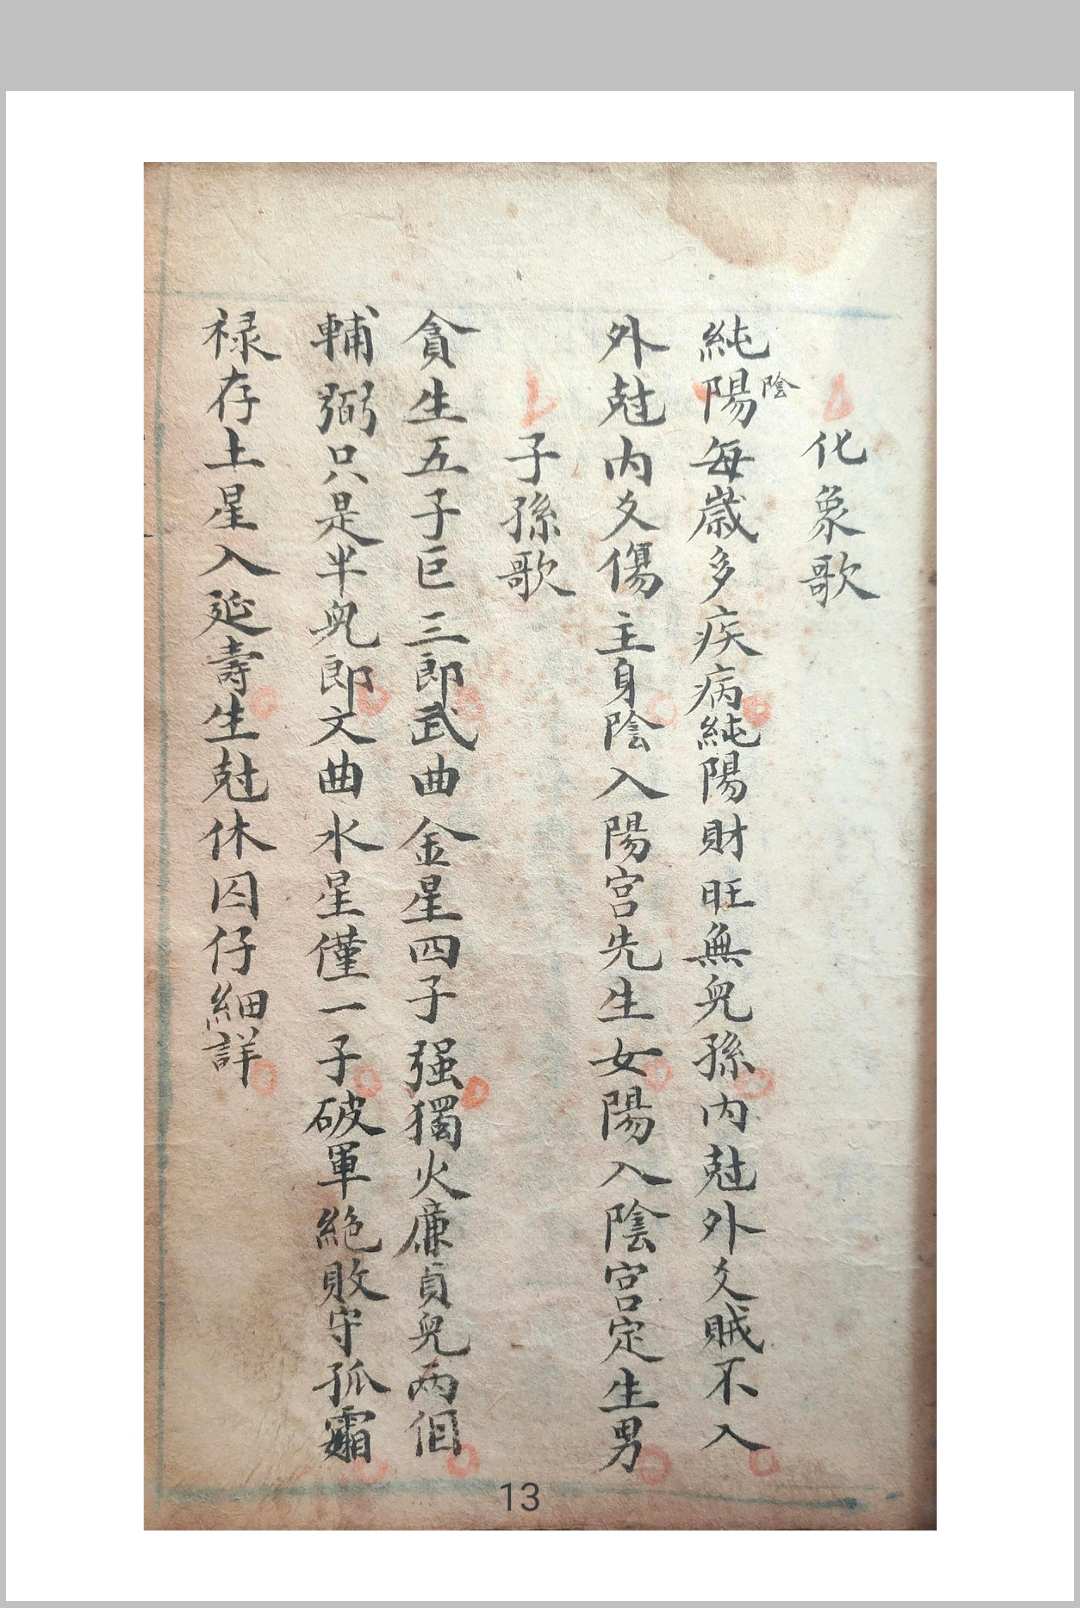 化象歌
純陽陰每歲多疾病純陽財旺無兒孫內尅外爻賊不入
外尅內爻傷主身陰入陽宮先生女陽入陰宮定生男
子孫歌
貪生五子巨三郎武曲金星四子强獨火廉貞兒兩個
輔弼只是半兒郎文曲水星僅一子破軍絕敗守孤霜
禄存土星入延壽生尅休囚仔細詳
13